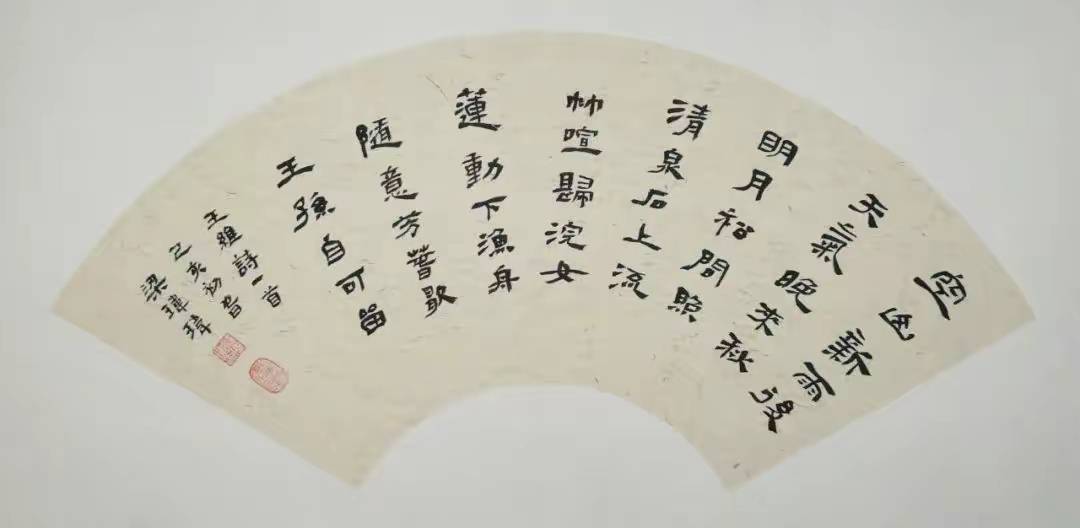 空山新雨後
天氣晚來秋
明月松間照
清泉石上流
竹喧歸浣女
蓮動下漁舟
隨意芳春歇
王孫自可留
王維詩一首
己亥初春
梁